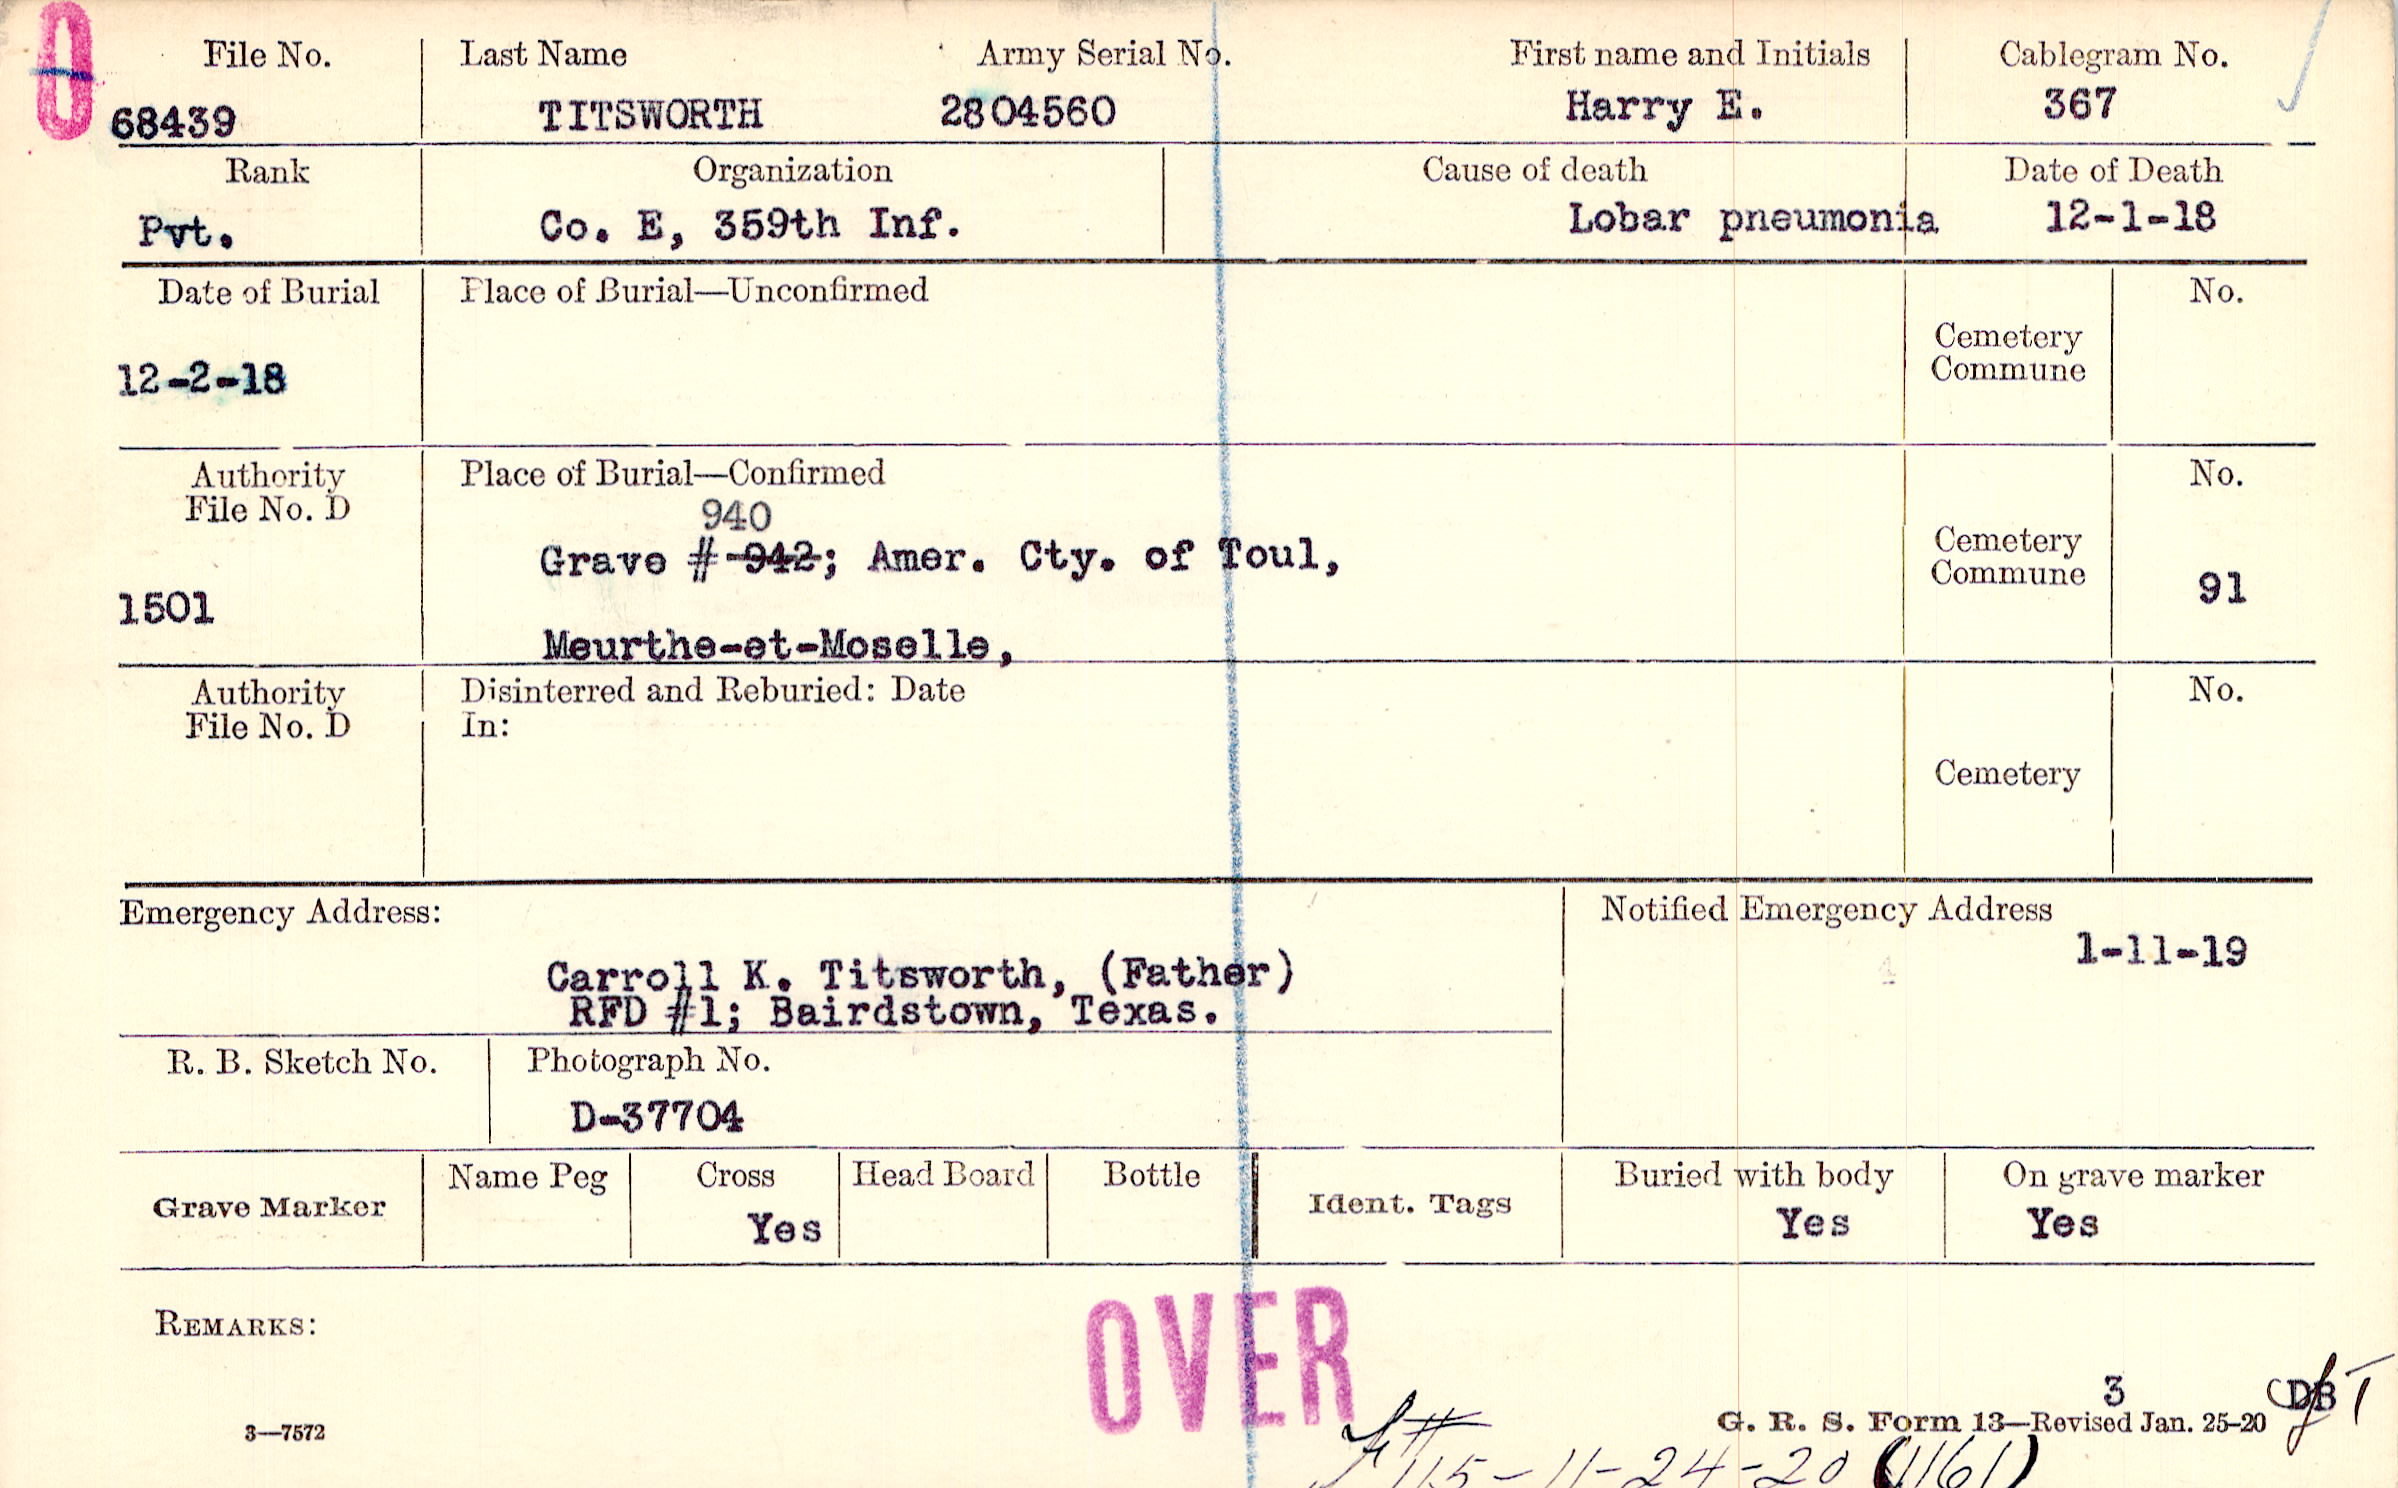 0
File No. Last Name Army Serial No. First name and Initials Cablegram No.
68439 TITSWORTH 2804560 Harry E. 367
Rank Organization Cause of death Date of Death
Pvt. Co. E, 359th Inf. Lobar pneumonia 12-1-18
Date of Burial Place of Burial—Unconfirmed No.
Cemetery
Commune
12-2-18
Authority Place of Burial—Confirmed No.
File No. D
940
Grave #-942; Amer. Cty. of Toul,
Cemetery
Commune 91
1501
Meurthe-et-Moselle,
Authority Disinterred and Reburied: Date No.
File No. D In:
Cemetery
Emergency Address: Notified Emergency Address
1-11-19
Carroll K. Titsworth, (Father)
RFD #1; Bairdstown, Texas.
R. B. Sketch No. Photograph No.
D-37704
Grave Marker Name Peg Cross Head Board Bottle Ident. Tags Buried with body On grave marker
Yes Yes Yes
REMARKS:
OVER
3 DB
3—7572 G. R. S. Form 13—Revised Jan. 25-20
115-11-24-20 (1161)